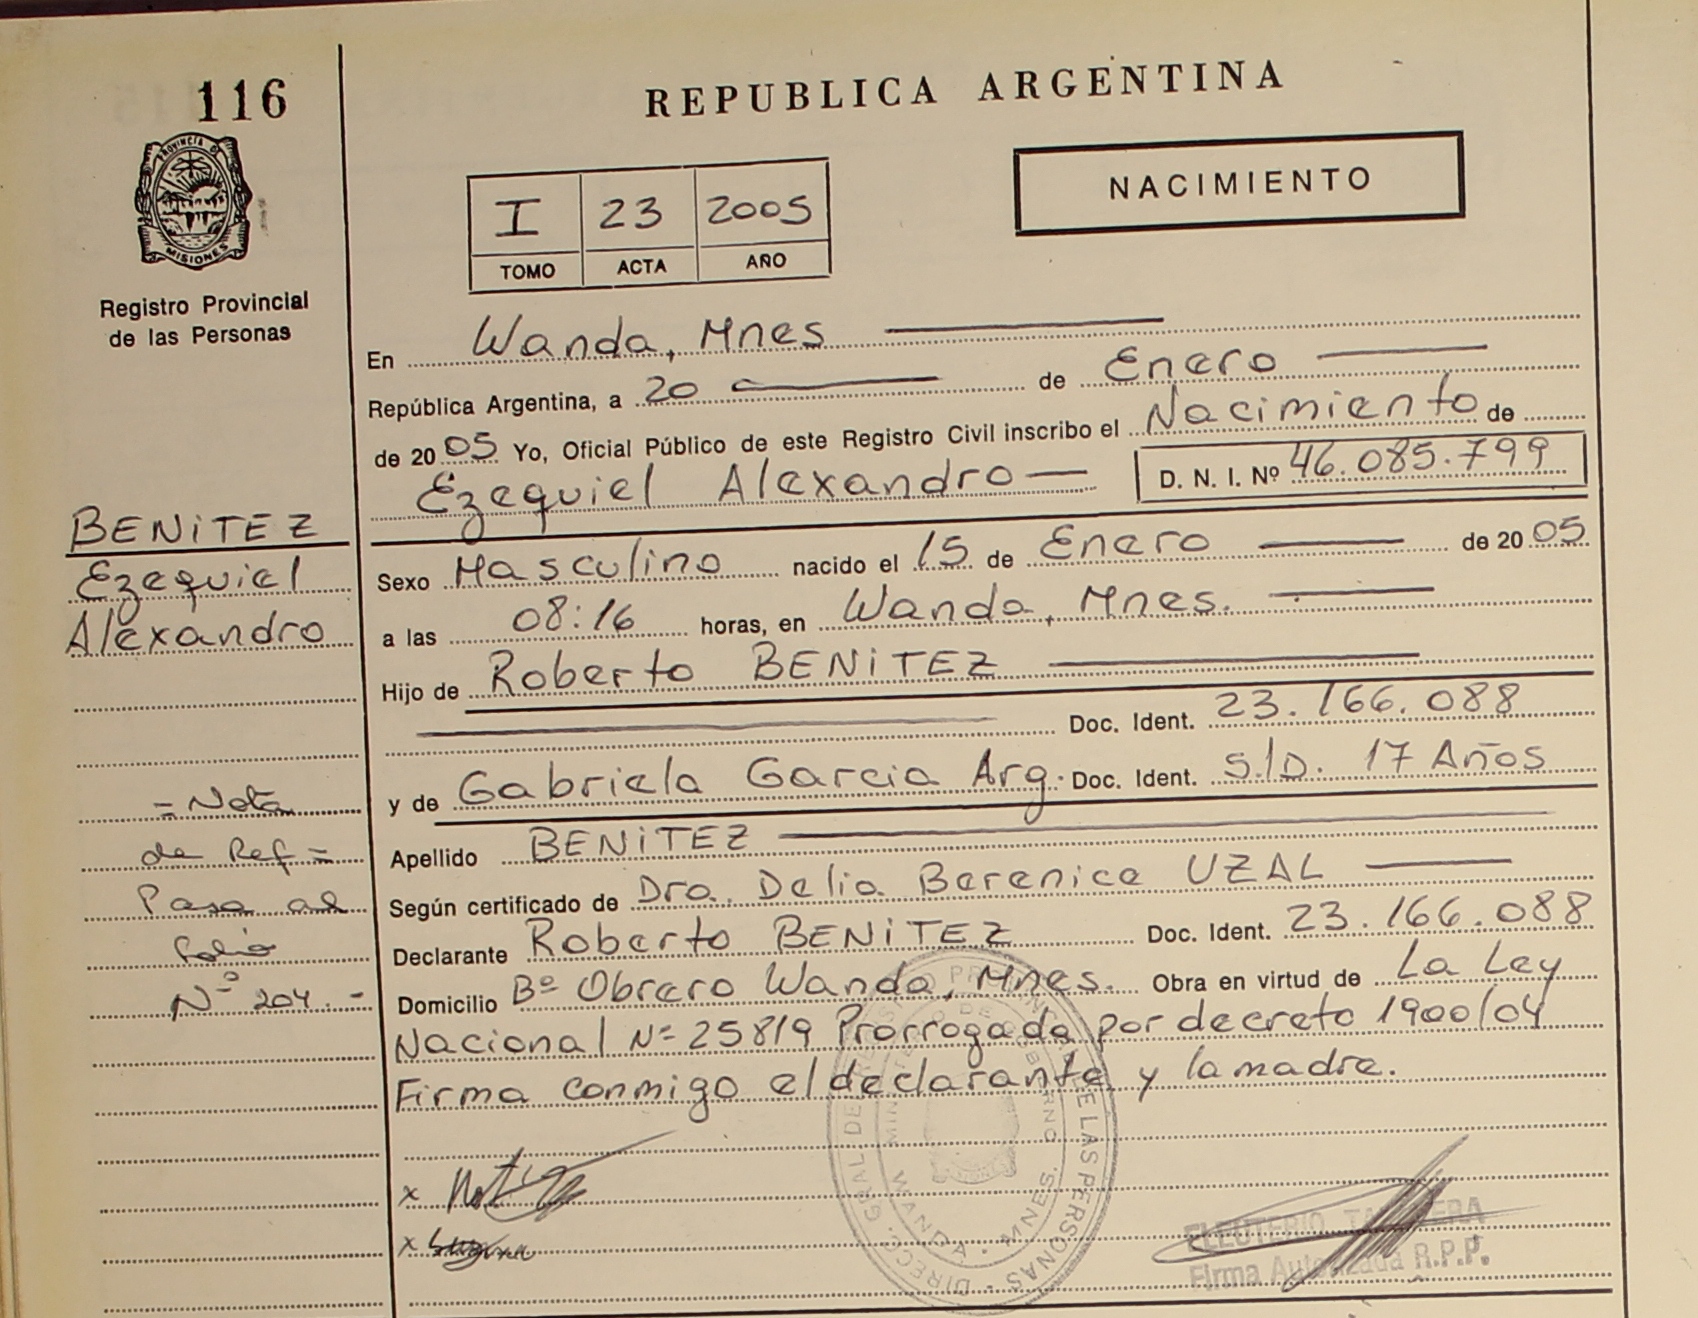 116
REPUBLICA ARGENTINA
PROVINCIA DE
MISIONES
Registro Provincial
de las Personas
NACIMIENTO
I 23 2005
TOMO ACTA AÑO
En Wanda, Mnes
República Argentina, a 20 de Enero
de 2005 Yo, Oficial Público de este Registro Civil inscribo el Nacimiento de
Ezequiel Alexandro D. N. I. Nº 46.085.799
BENITEZ
Ezequiel
Alexandro
Sexo Masculino nacido el 15 de Enero de 2005
a las 08:16 horas, en Wanda, Mnes.
Hijo de Roberto BENITEZ
Doc. Ident. 23.166.088
y de Gabriela Garcia Arg. Doc. Ident. S/D. 17 Años
Apellido BENITEZ
Según certificado de Dra. Delia Berenice UZAL
Declarante Roberto BENITEZ Doc. Ident. 23.166.088
Domicilio Bº Obrero Wanda, Mnes. Obra en virtud de La Ley
Nacional Nº 25819 Prorrogada por decreto 1900/04
Firma conmigo el declarante y la madre.
= Nota
de Ref =
Pasa al
folio
Nº 204. -
x
x
DIRECC. GRAL. DE REGISTRO PROVINCIAL DE LAS PERSONAS
MINISTERIO DE GOBIERNO
WANDA - MNES.
ELEUTERIO
Firma Autorizada R.P.P.